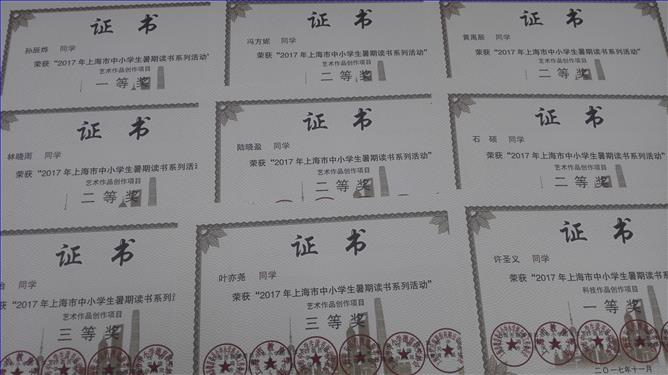 证书
孙辰烨 同学
荣获“2017年上海市中小学生暑期读书系列活动”
艺术作品创作项目
一等奖
证书
冯方妮 同学
荣获“2017年上海市中小学生暑期读书系列活动”
艺术作品创作项目
二等奖
证书
黄禹辰 同学
荣获“2017年上海市中小学生暑期读书系列活动”
艺术作品创作项目
二等奖
证书
林晓雨 同学
荣获“2017年上海市中小学生暑期读书系列活动
艺术作品创作项目
二等奖
证书
陆晓盈 同学
荣获“2017年上海市中小学生暑期读书系列活动”
艺术作品创作项目
二等奖
证书
石硕 同学
荣获“2017年上海市中小学生暑期读书系列活动”
艺术作品创作项目
二等奖
证书
同学
荣获“2017年上海市中小学生暑期读书系列活动
艺术作品创作项目
三等奖
证书
叶亦尧 同学
荣获“2017年上海市中小学生暑期读书系列活动”
艺术作品创作项目
三等奖
证书
许圣义 同学
荣获“2017年上海市中小学生暑期读书系列活动”
科技作品创作项目
一等奖
二〇一七年十一月